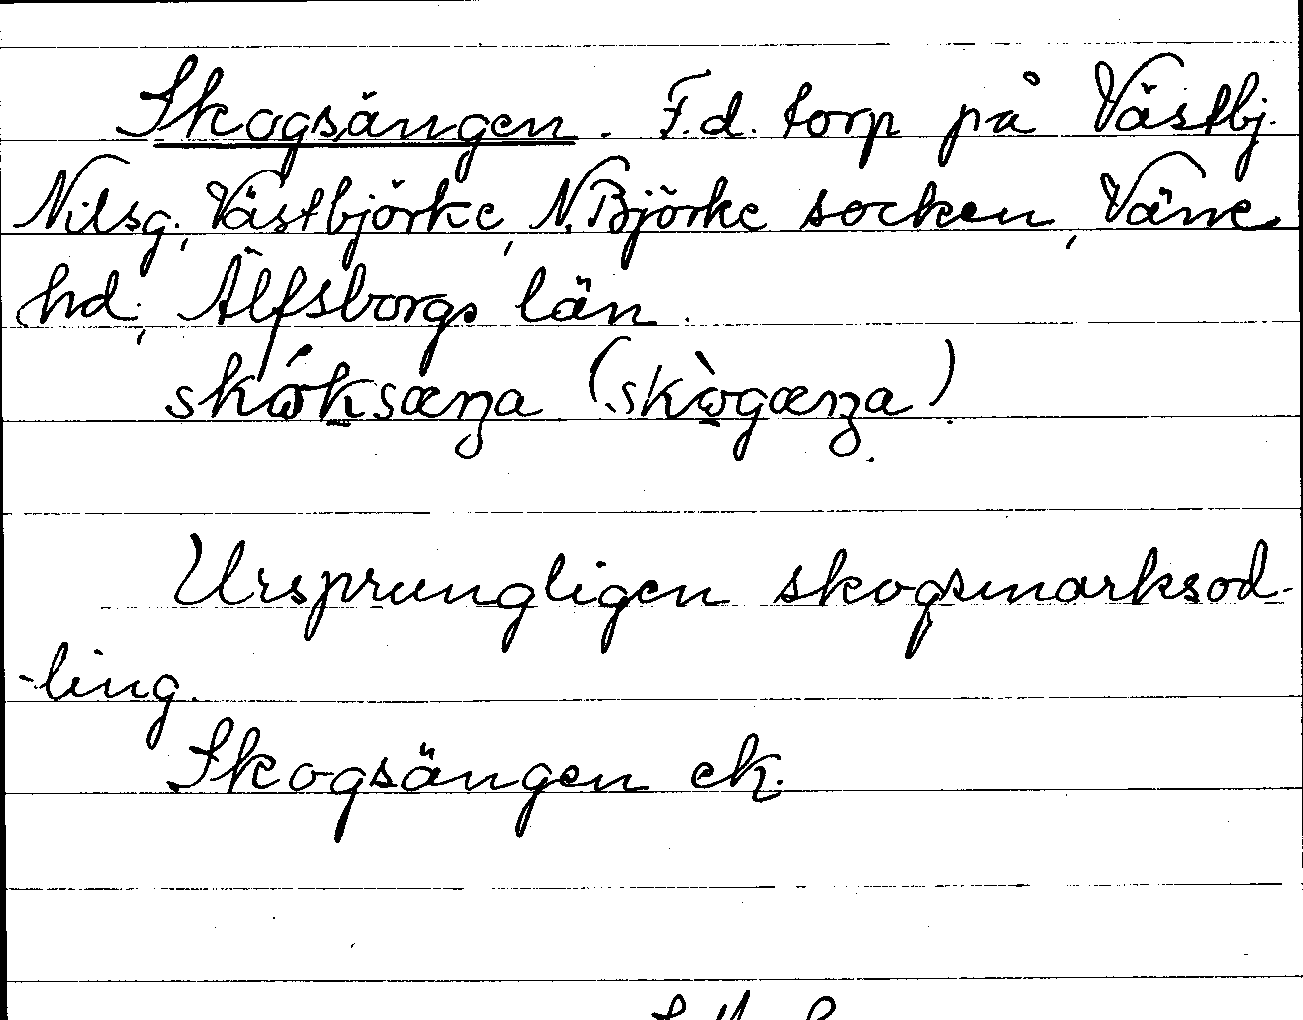 Skogsängen. F.d. torp på Västbj.
Nilsg., Västbjörke, N. Björke socken, Väne
hd., Älfsborgs län.
skóksæŋa (skògæŋa).
Ursprungligen skogsmarksod-
-ling.
Skogsängen ek.